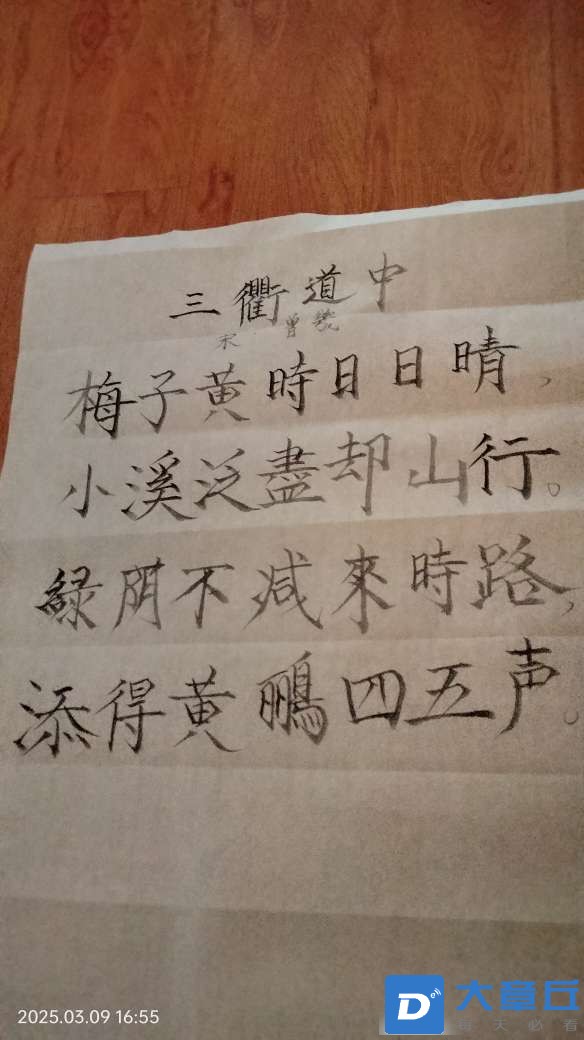 三衢道中
宋 曾幾
梅子黄時日日晴，
小溪泛盡却山行。
緑阴不减來時路，
添得黄鵬四五声。
2025.03.09 16:55
大章丘
每天必看